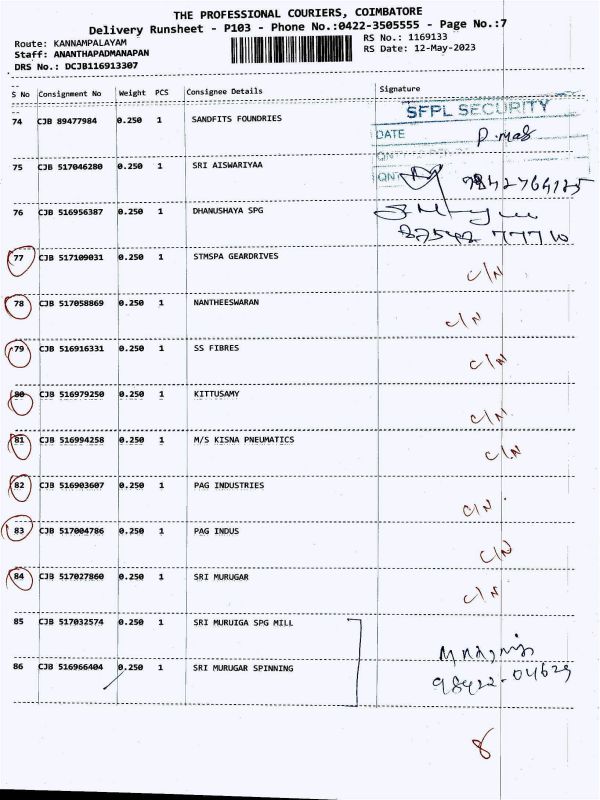 THE PROFESSIONAL COURIERS, COIMBATORE
Delivery Runsheet - P103 - Phone No.:0422-3505555 - Page No.:7
Route: KANNAMPALAYAM RS No.: 1169133
Staff: ANANTHAPADMANAPAN RS Date: 12-May-2023
DRS No.: DCJB116913307
S No Consignment No Weight PCS Consignee Details Signature
74 CJB 89477984 0.250 1 SANDFITS FOUNDRIES
SFPL SECURITY
DATE
75 CJB 517046280 0.250 1 SRI AISWARIYAA
QNT
9842764125
76 CJB 516956387 0.250 1 DHANUSHAYA SPG
82548 77710
77 CJB 517109031 0.250 1 STMSPA GEARDRIVES C/N
78 CJB 517058869 0.250 1 NANTHEESWARAN C/N
79 CJB 516916331 0.250 1 SS FIBRES C/N
80 CJB 516979250 0.250 1 KITTUSAMY C/N
81 CJB 516994258 0.250 1 M/S KISNA PNEUMATICS C/N
82 CJB 516903607 0.250 1 PAG INDUSTRIES C/N
83 CJB 517004786 0.250 1 PAG INDUS C/N
84 CJB 517027860 0.250 1 SRI MURUGAR C/N
85 CJB 517032574 0.250 1 SRI MURUIGA SPG MILL
86 CJB 516966404 0.250 1 SRI MURUGAR SPINNING
98422-04629
8